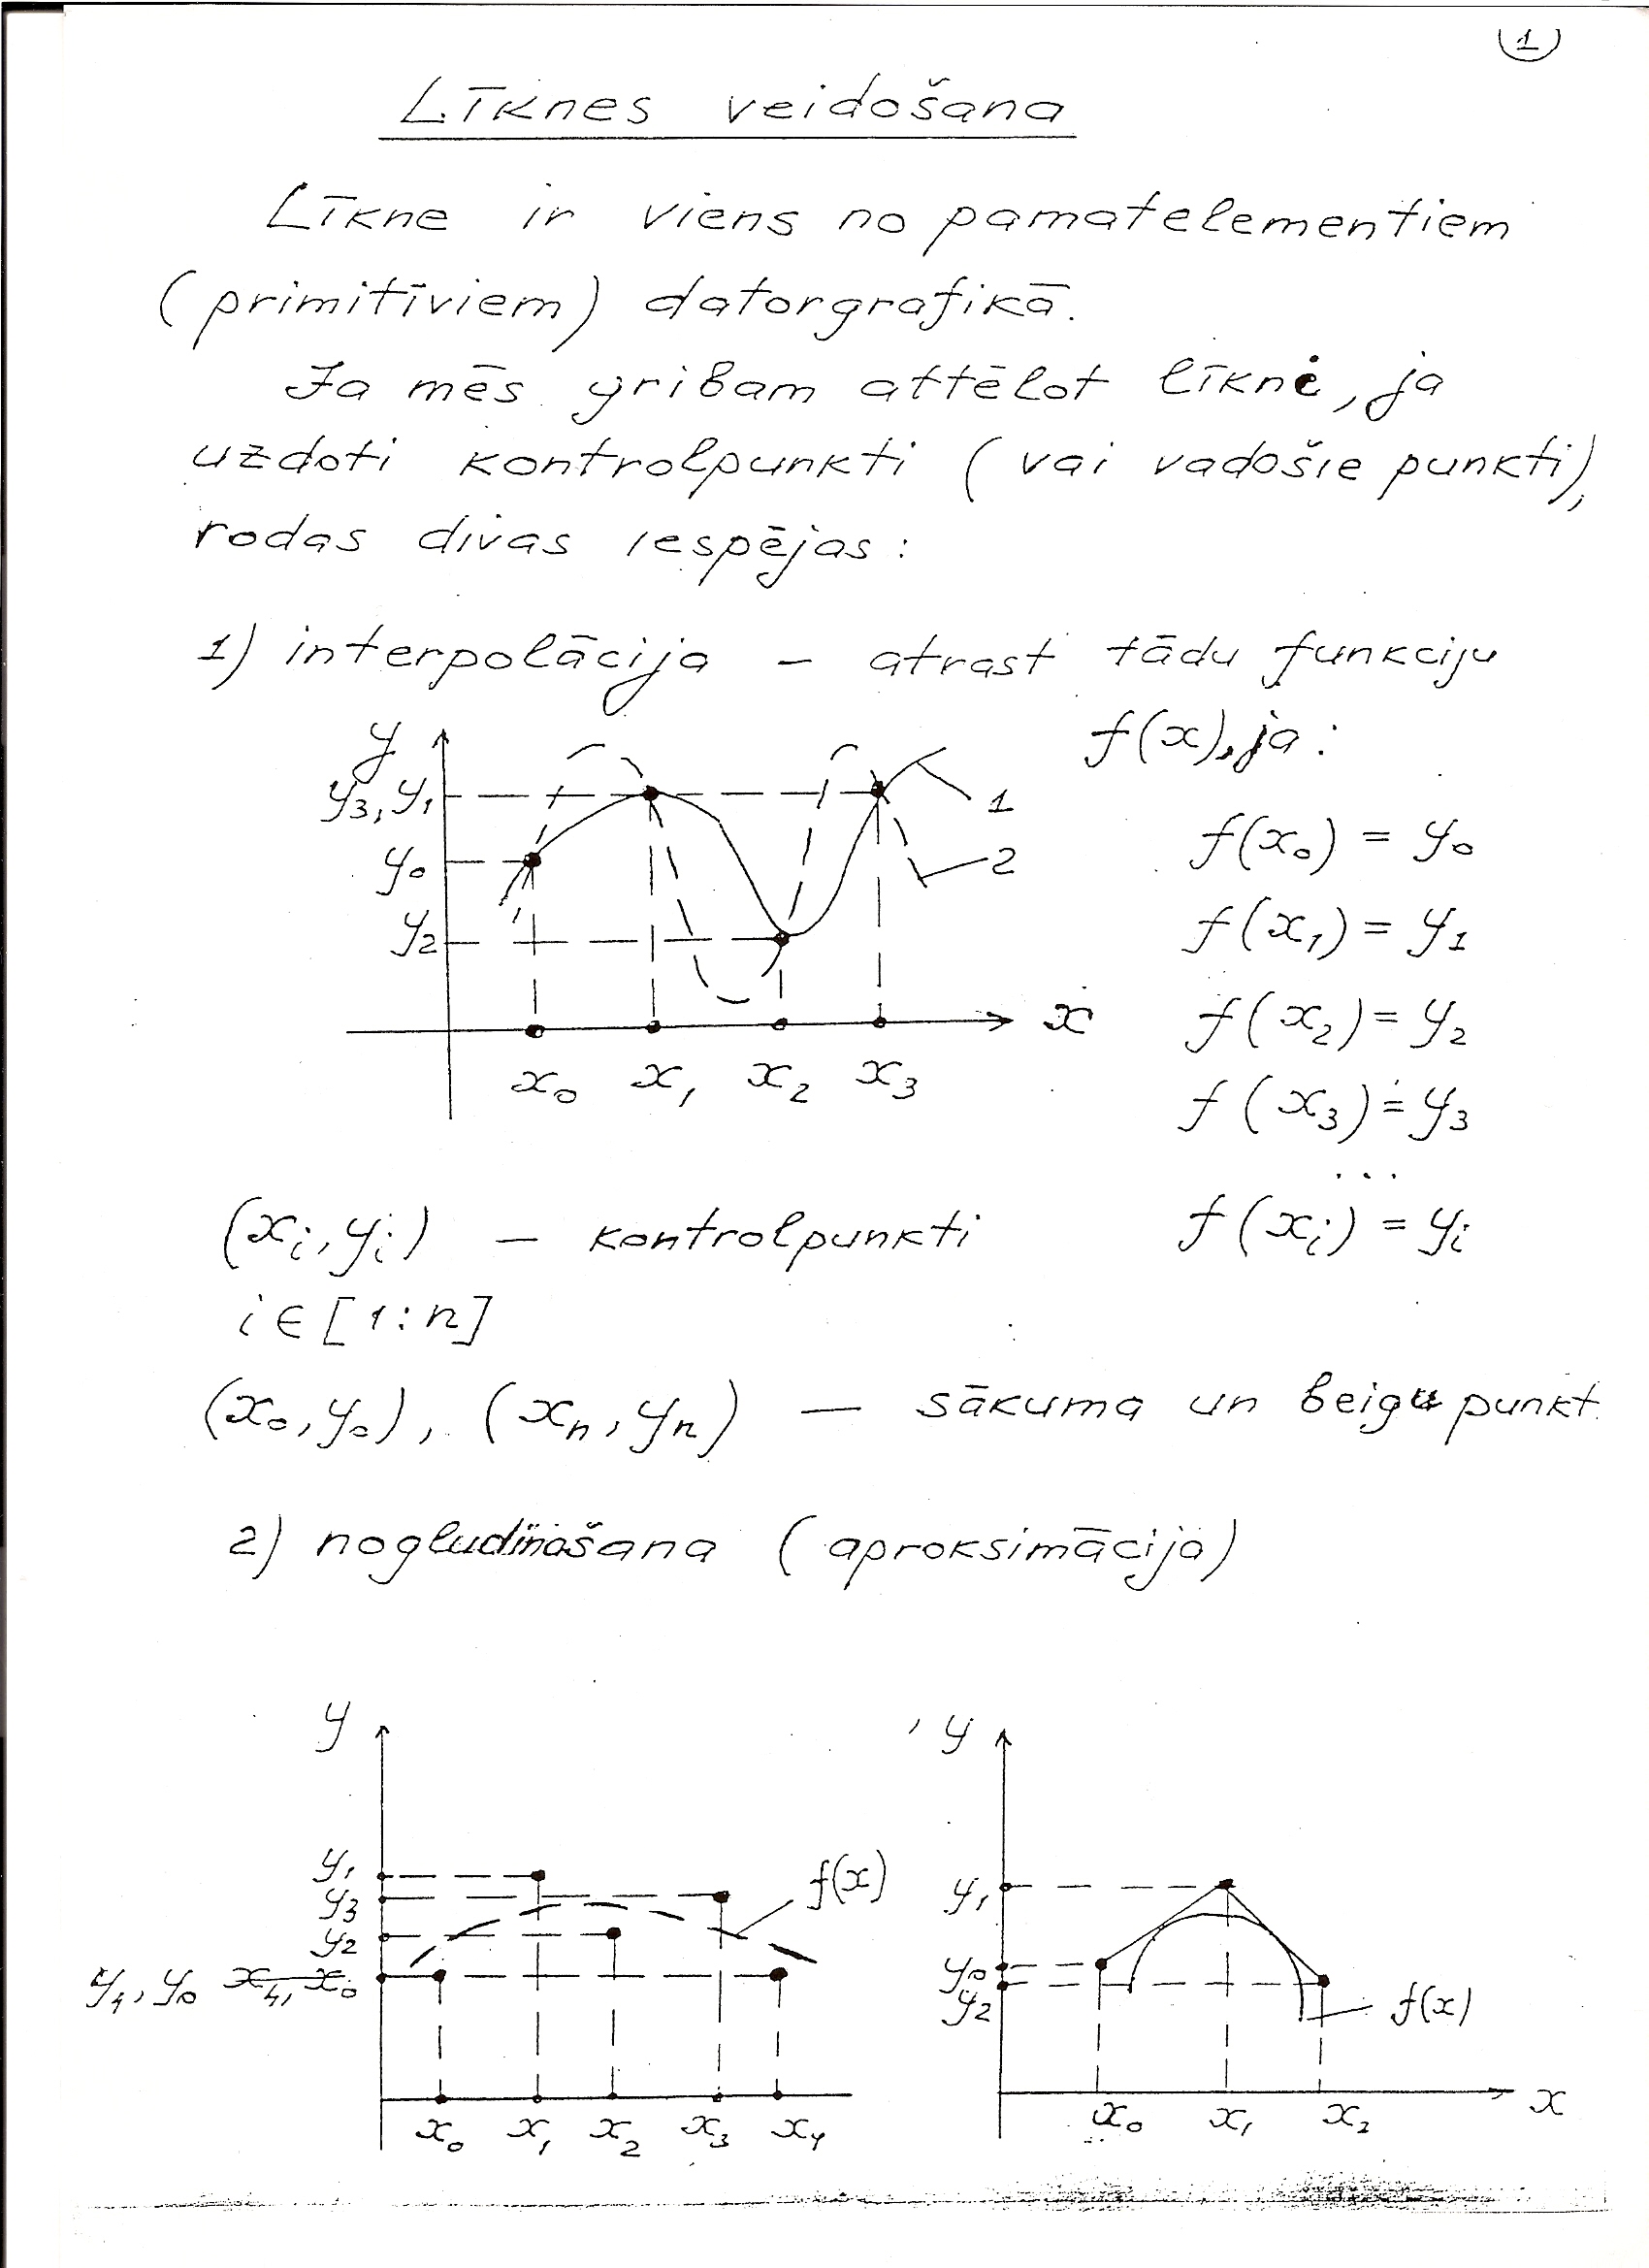 1
Līknes veidošana
Līkne ir viens no pamatelementiem
(primitīviem) datorgrafikā.
Ja mēs gribam attēlot līkni, ja
uzdoti kontrolpunkti (vai vadošie punkti),
rodas divas iespējas:
1) interpolācija — atrast tādu funkciju
f(x), ja:
y
y₃, y₁
y₀
y₂
1
2
x
x₀ x₁ x₂ x₃
f(x₀) = y₀
f(x₁) = y₁
f(x₂) = y₂
f(x₃) = y₃
...
f(xᵢ) = yᵢ
(xᵢ, yᵢ) — kontrolpunkti
i ∈ [1:n]
(x₀, y₀), (xₙ, yₙ) — sākuma un beigu punkt.
2) nogludināšana (aproksimācija)
y
y₁
y₃
y₂
y₄, y₀ x₄, x₀
f(x)
x₀ x₁ x₂ x₃ x₄
y
y₁
y₀
y₂
f(x)
x₀ x₁ x₂
x